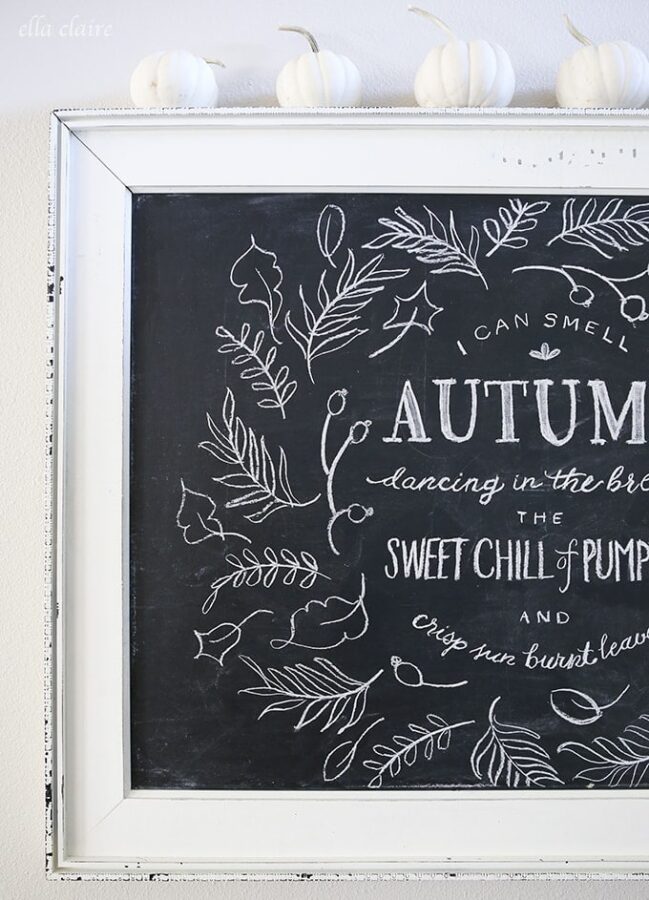 ella claire
I CAN SMELL
AUTUM
dancing in the bre
THE
SWEET CHILL of PUMP
AND
crisp sun burnt leave